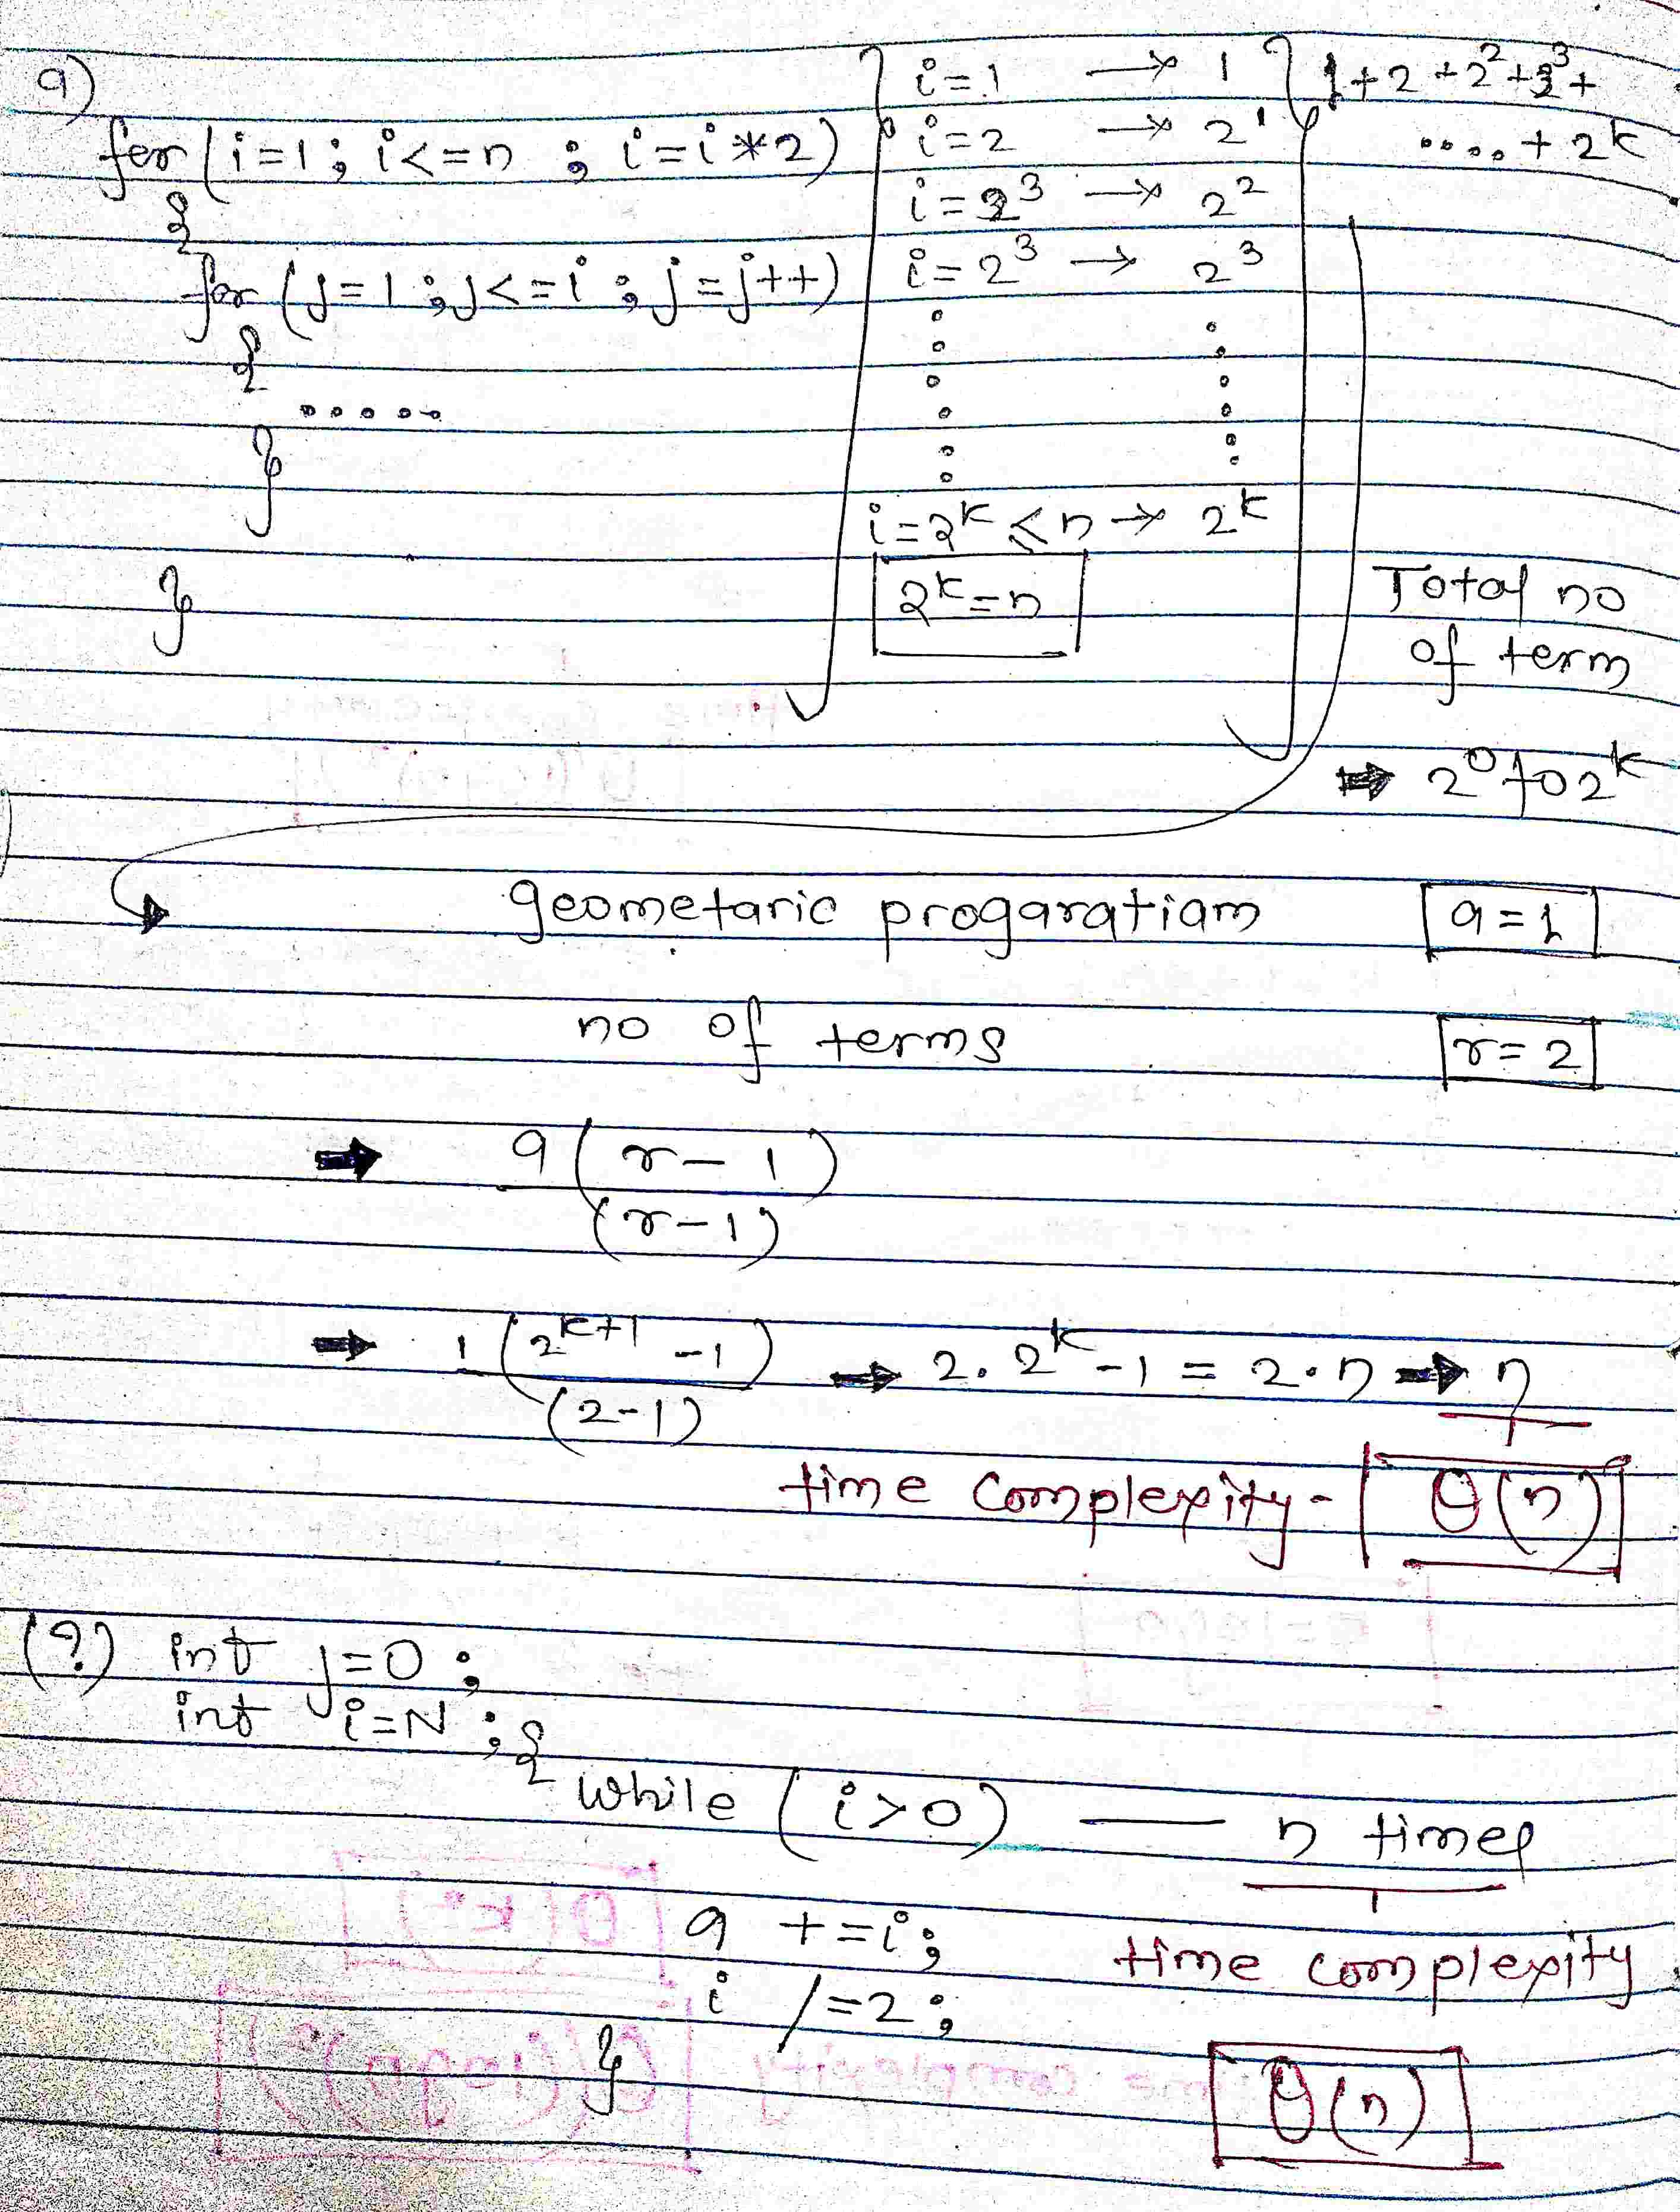 a)
for (i=1; i<=n ; i=i*2)
{
for (j=1; j<=i ; j=j++)
{
.....
}
}
i=1 → 1
i=2 → 2¹
i=2³ → 2²
i=2³ → 2³
i=2ᵏ ≤ n → 2ᵏ
2ᵏ=n
1+2+2²+2³+
....+2ᵏ
Total no
of term
⇒ 2⁰ to 2ᵏ
geometaric progaratiam a=1
no of terms r=2
⇒ a(r-1)
(r-1)
⇒ 1(2ᵏ⁺¹-1) ⇒ 2.2ᵏ-1 = 2.n ⇒ n
(2-1)
time complexity - θ(n)
(?) int j=0;
int i=N; {
while (i>0) — n times
a +=i; time complexity
i /=2;
} θ(n)